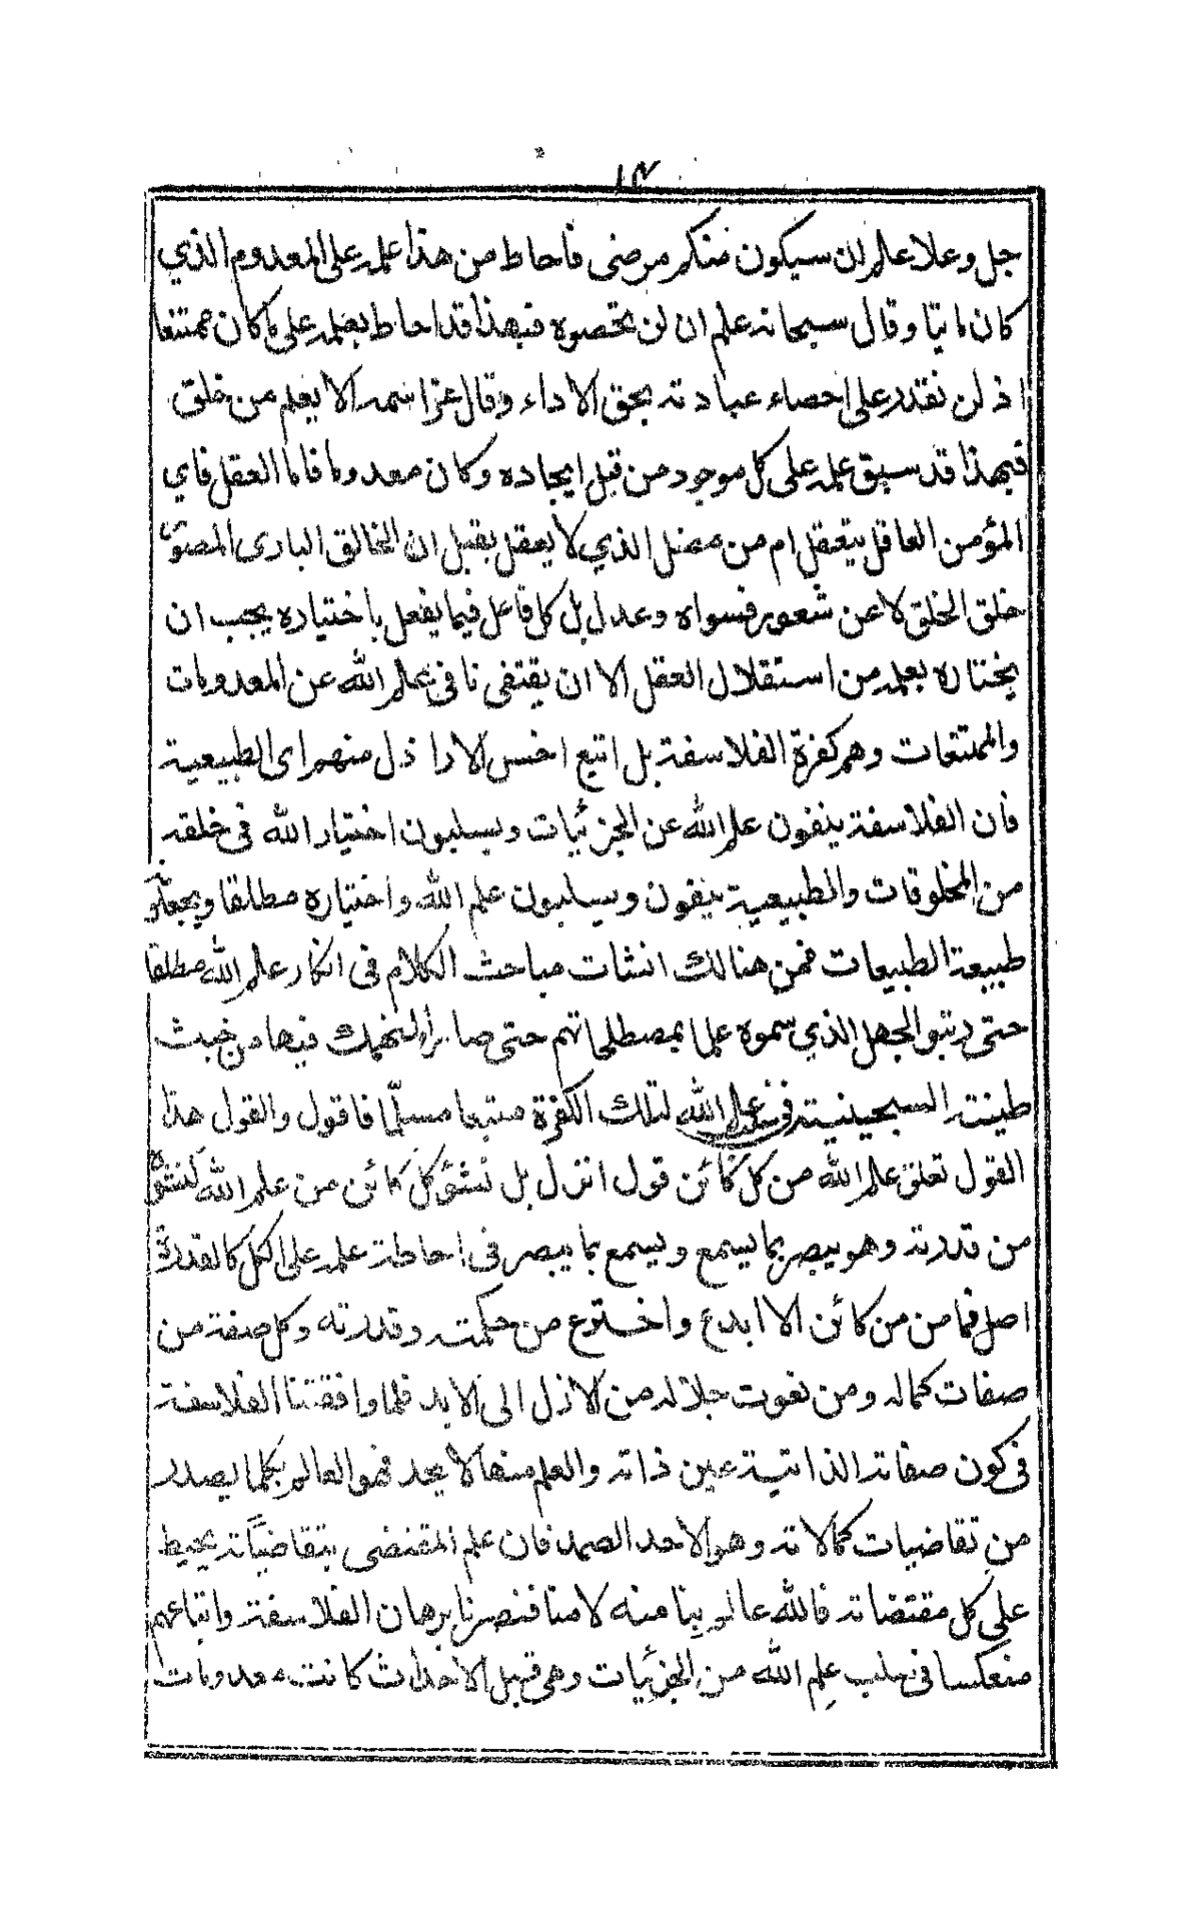 ١٣
جل وعلا علم ان سيكون منكم مرضى فاحاط من هذا علمه على المعدوم الذي
كان ماتيا وقال سبحانه علم ان لن تحصوه فبهذا قد احاط بعلمه على ما كان ممتنعا
اذ لن نقدر على احصاء عبادته بحق الاداء وقال عز اسمه الا يعلم من خلق
فبهذا قد سبق علمه على كل موجود من قبل ايجاده وكان معدوما فاما العقل فاي
المؤمن العاقل يتعقل ام من الذي لا يعقل يقبل ان الخالق الباري المصور
خلق الخلق لا عن شعور فسواه وعدل بل كل فاعل فيما يفعل باختياره يجب ان
يختاره بعلمه من استقلال العقل الا ان يقتفي نافي علم الله عن المعدومات
والممتنعات وهم كفرة الفلاسفة بل اتبع اخس الارا ذل منهم اى الطبيعية
فان الفلاسفة ينفون علم الله عن الجزئيات ويسلبون اختيار الله في خلقه
من المخلوقات والطبيعية ينفون ويسلبون علم الله واختياره مطلقا ويجعلو
طبيعة الطبيعات فمن هنالك انشات مباحث الكلام في انكار علم الله مطلقا
حتى رتبو الجهل الذي سموه علما بمصطلحاتهم حتى صار المنهمك فيها من خبث
طينته السجينية في علم الله لتلك الكفرة متبعا مسلّما فاقول والقول هذا
القول تعلق علم الله من كل كائن قول انزل بل نشئ كل كائن من علم الله كنشئ
من قدرته وهو يبصر بما يسمع ويسمع بما يبصر في احاطة علمه على الكل كالقدرة
اصل فما من من كائن الا ابدع واخترع من حكمته وقدرته وكل صفة من
صفات كماله ومن نعوت جلاله من الازل الى الابد فلما وافقتنا الفلاسفة
في كون صفاته الذاتية عين ذاته والعلم منها لا يحد فهو العالم بكلما يصدر
من تقاضيات كمالاته وهو الاحد الصمد فان علم المقتضى بتقاضيّاته يحيط
على كل مقتضاته فالله عالم بنا منه لا منا فنصرنا برهان الفلاسفة واتباعهم
منعكسا في سلب علم الله من الجزئيات وهي قبل الاحداث كانت معدومات